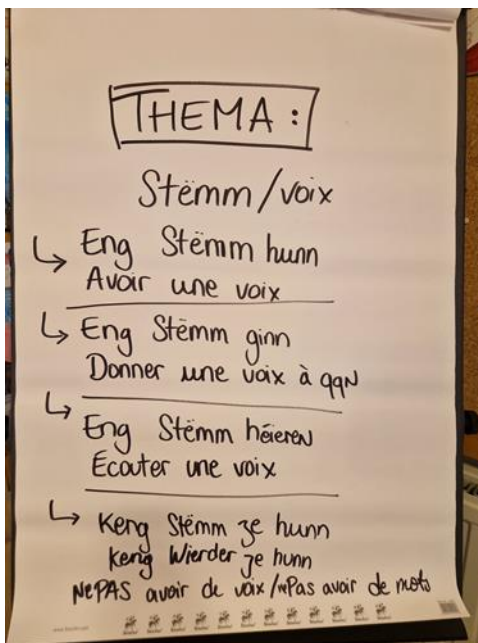 THEMA :
Stëmm/voix
↳ Eng Stëmm hunn
Avoir une voix
↳ Eng Stëmm ginn
Donner une voix à qqN
↳ Eng Stëmm héieren
Ecouter une voix
↳ Keng Stëmm ze hunn
keng Wierder ze hunn
NePAS avoir de voix/nePas avoir de mots